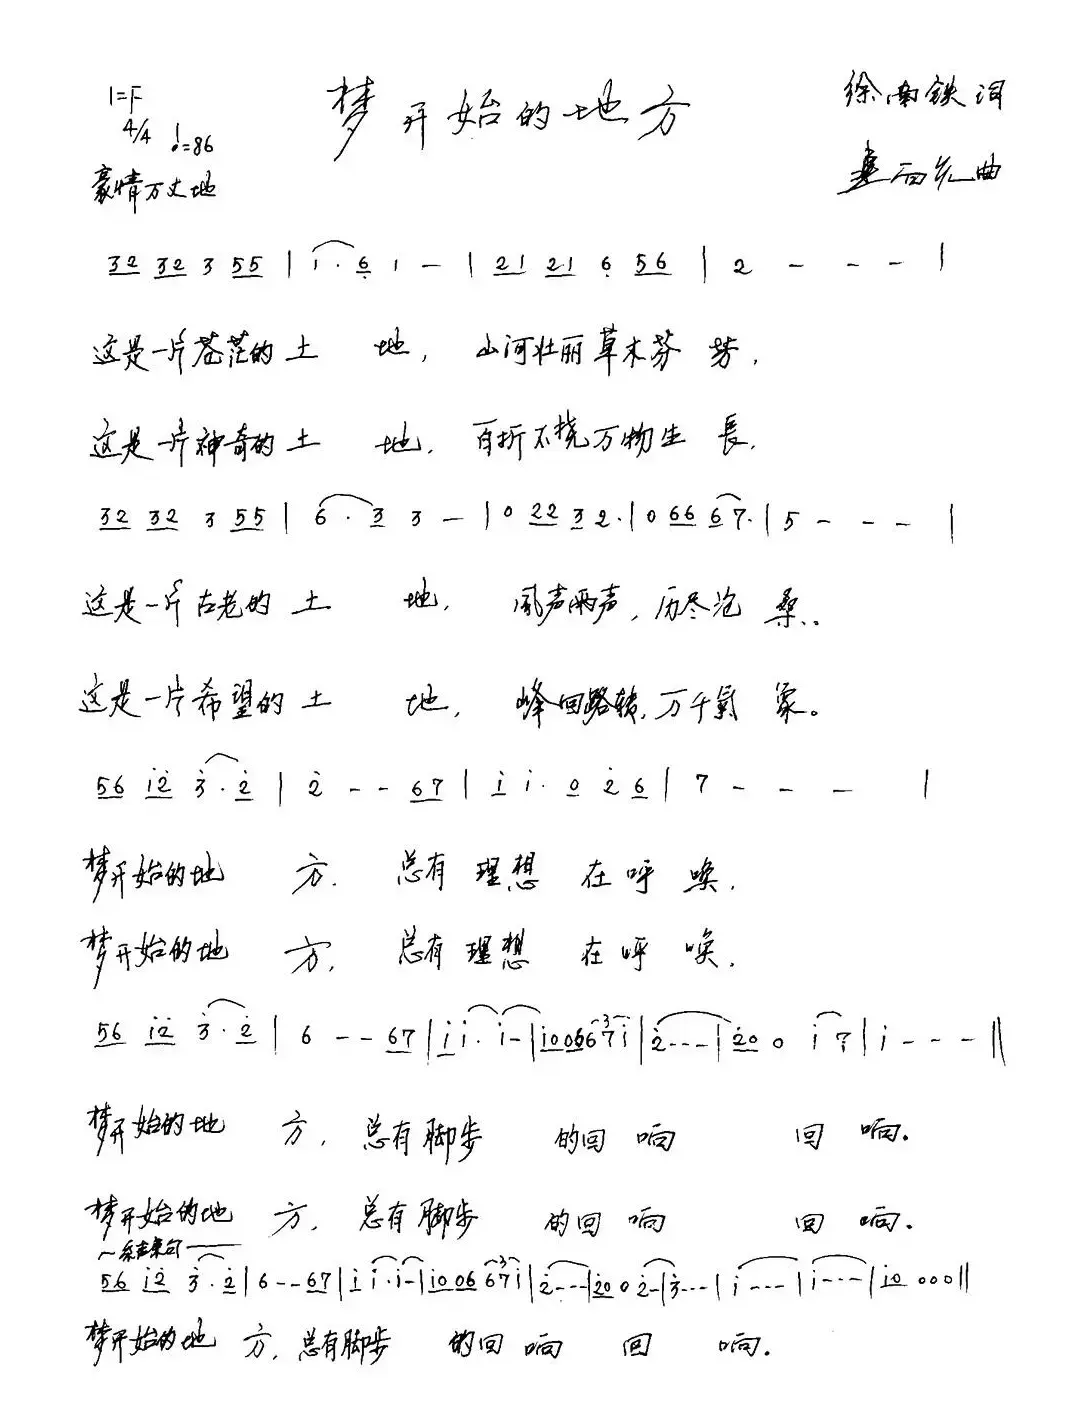 1=F
梦开始的地方
徐南铁 词
4/4 ♩=86
曲
豪情万丈地
32 32 3 55 | 1· 6 1 – | 21 21 6 56 | 2 – – – |
这是一片苍茫的土 地, 山河壮丽草木芬 芳,
这是一片神奇的土 地, 百折不挠万物生 長,
32 32 3 55 | 6· 3 3 – | 0 22 3 2· | 0 66 6 7· | 5 – – – |
这是一片古老的 土 地, 风声雨声,历尽沧 桑..
这是一片希望的 土 地, 峰回路转,万千氣 象。
56 i̇2̇ 3̇· 2̇ | 2̇ – – 67 | i̇ i̇· 0 2̇ 6 | 7 – – – |
梦开始的地 方, 总有 理想 在呼 唤,
梦开始的地 方, 总有理想 在呼 唤,
56 i̇2̇ 3̇· 2̇ | 6 – – 67 | i̇ i̇· i̇ – | i̇006 67i̇ | 2̇ – – – | 2̇0 0 i̇ 7 | i̇ – – – ‖
梦开始的地 方, 总有脚步 的回 响 回 响.
梦开始的地 方, 总有脚步 的回 响 回 响.
结束句
56 i̇2̇ 3̇· 2̇ | 6 – – 67 | i̇ i̇· i̇ – | i̇006 67i̇ | 2̇ – – – | 2̇0 0 2̇ – | 3̇ – – – | i̇ – – – | i̇ – – – | i̇0 000 ‖
梦开始的地 方, 总有脚步 的回 响 回 响.